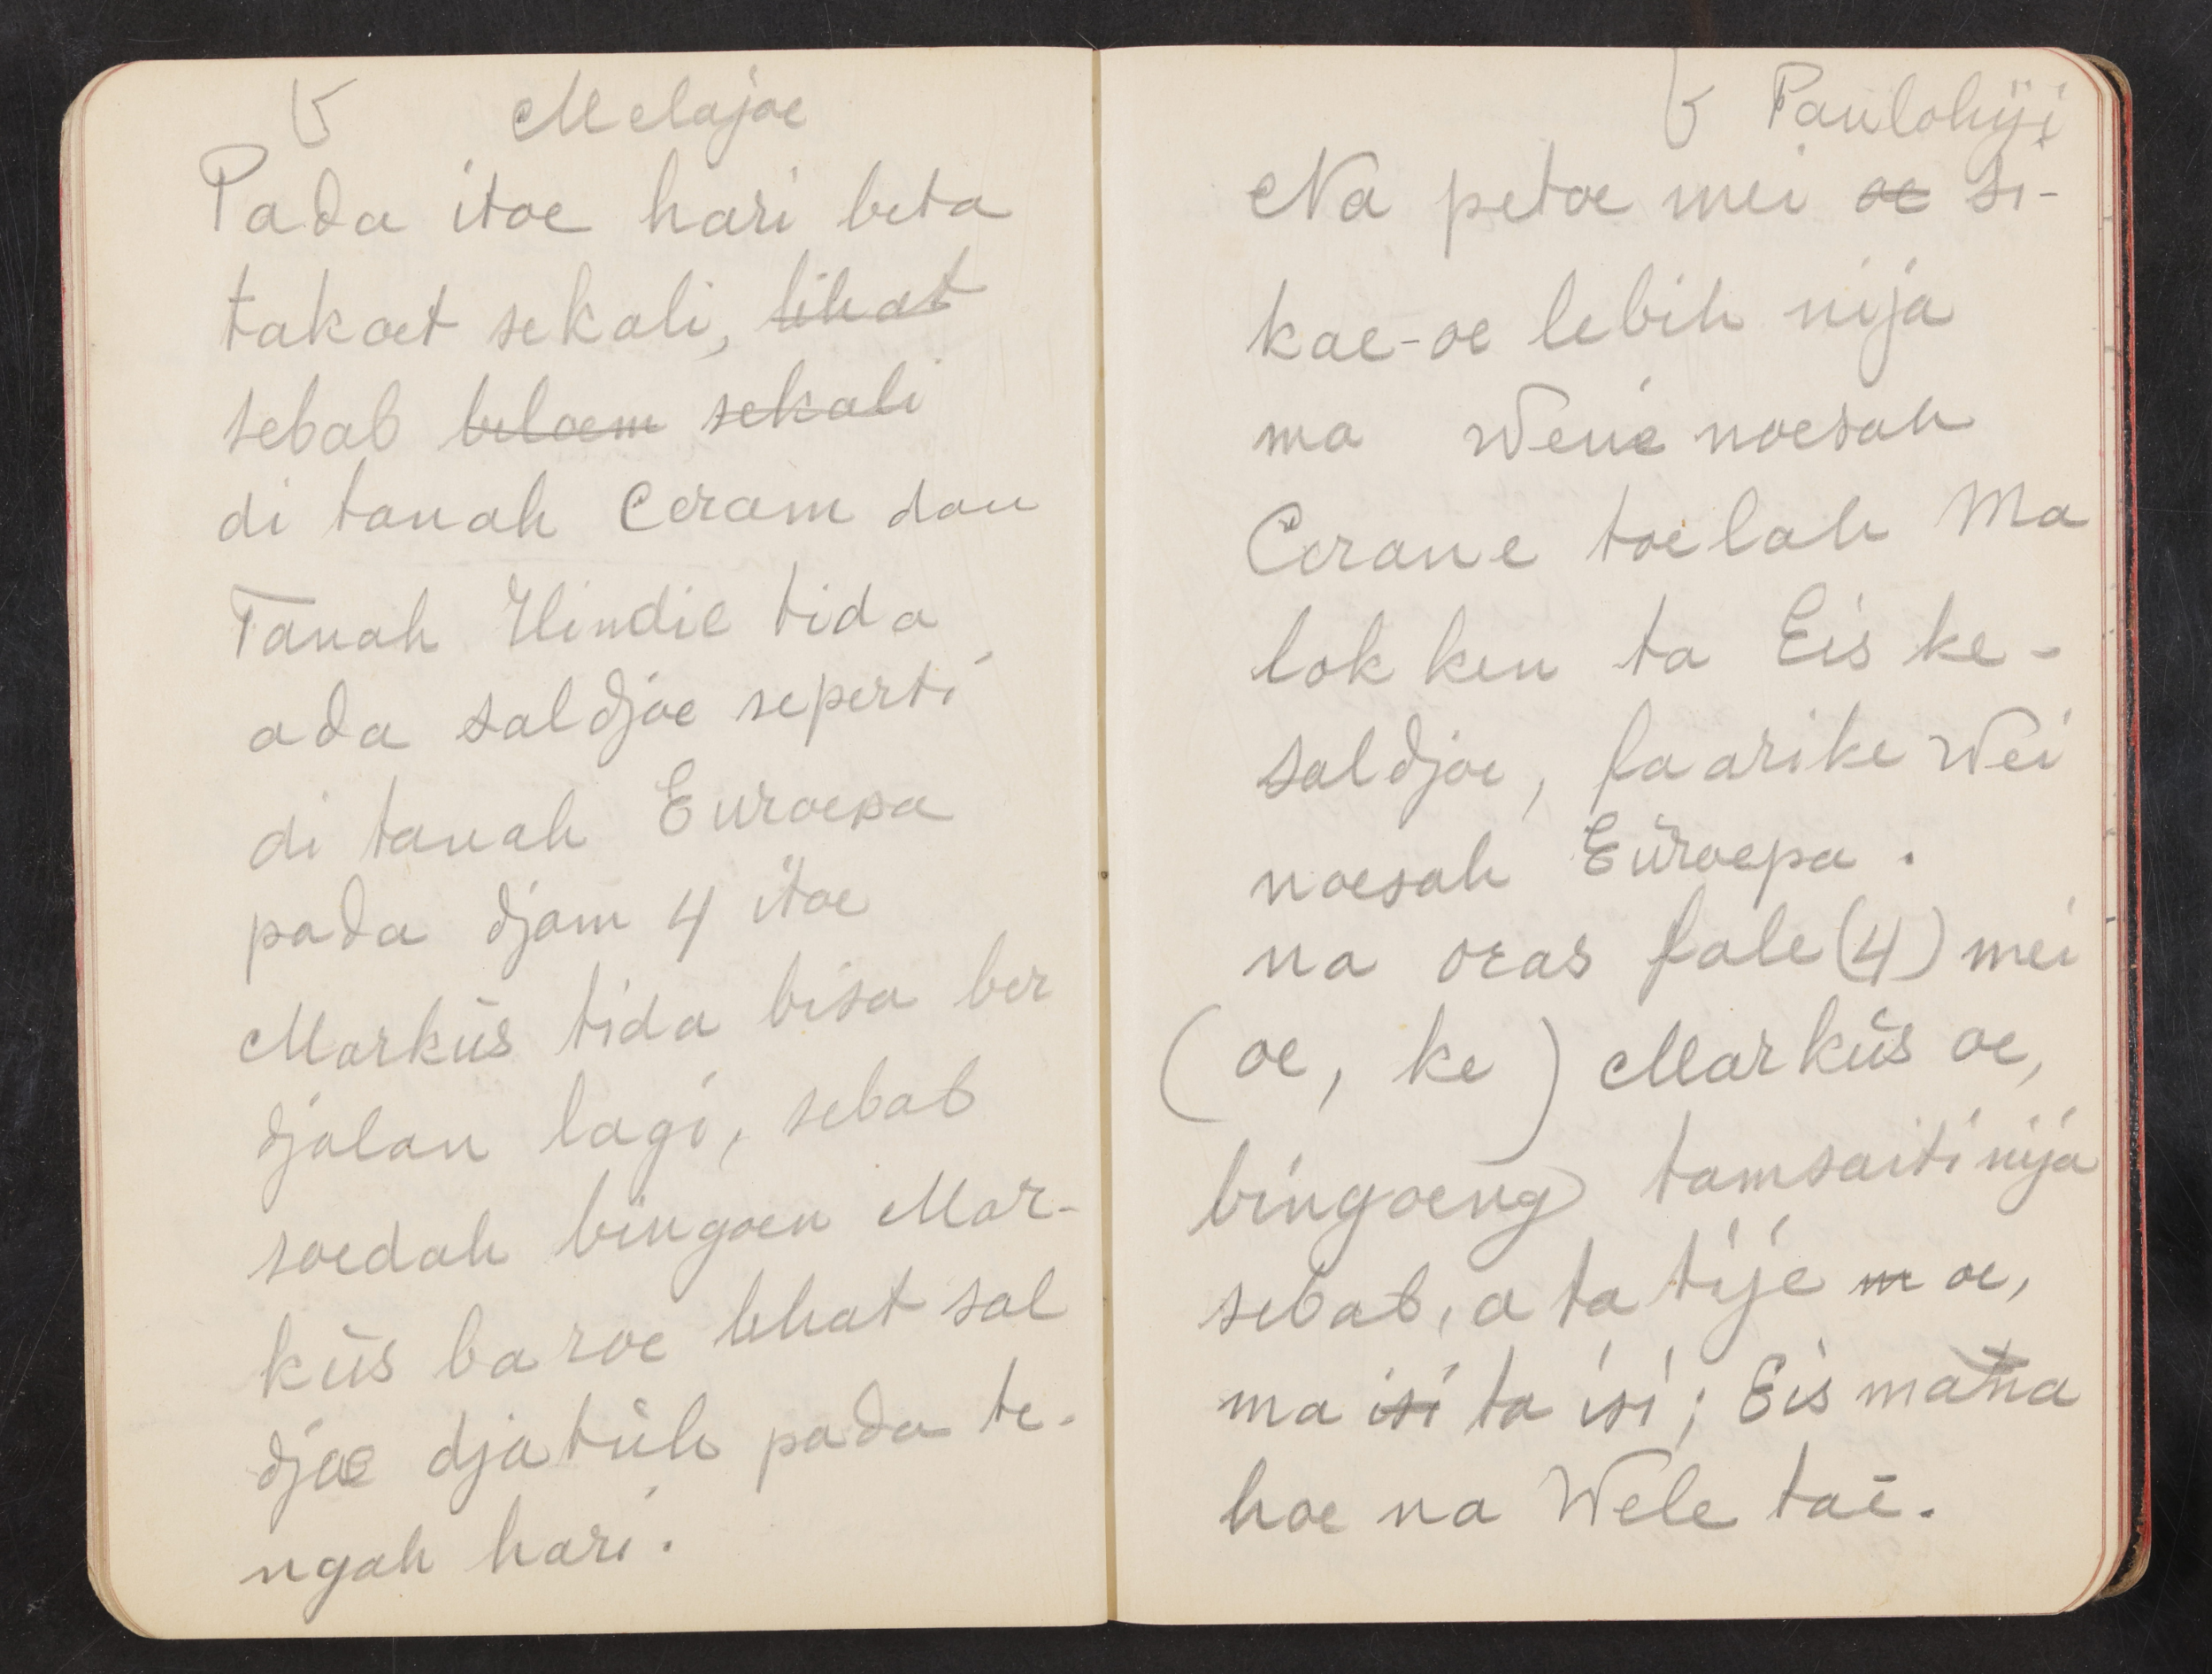 V Melajoe
Pada itoe hari beta
takoet sekali, lihat
sebab beloem sekali
di tanah Ceram dan
Tanah Hindie tida
ada saldjoe seperti
di tanah Euroepa
pada djam 4 itoe
Markūs tida bisa ber
djalan lagi, sebab
soedah bingoen Mar-
kūs baroe lihat sal
djoe djatūh pada te-
ngah hari.
V Paulohiji
Na petoe mei oe si-
kae-oe lebih nija
ma Weie noesah
Cerane toelah Ma
lok ken ta Eis ke-
saldjoe, faarike Wei
noesah Eūroepa.
na oras fale (4) mei
(oe, ke) Markūs oe,
bingoeng tamsaiti nija
sebab, a ta tije m oe,
ma isi ta isi; Eis matna
hoe na Wele taē.